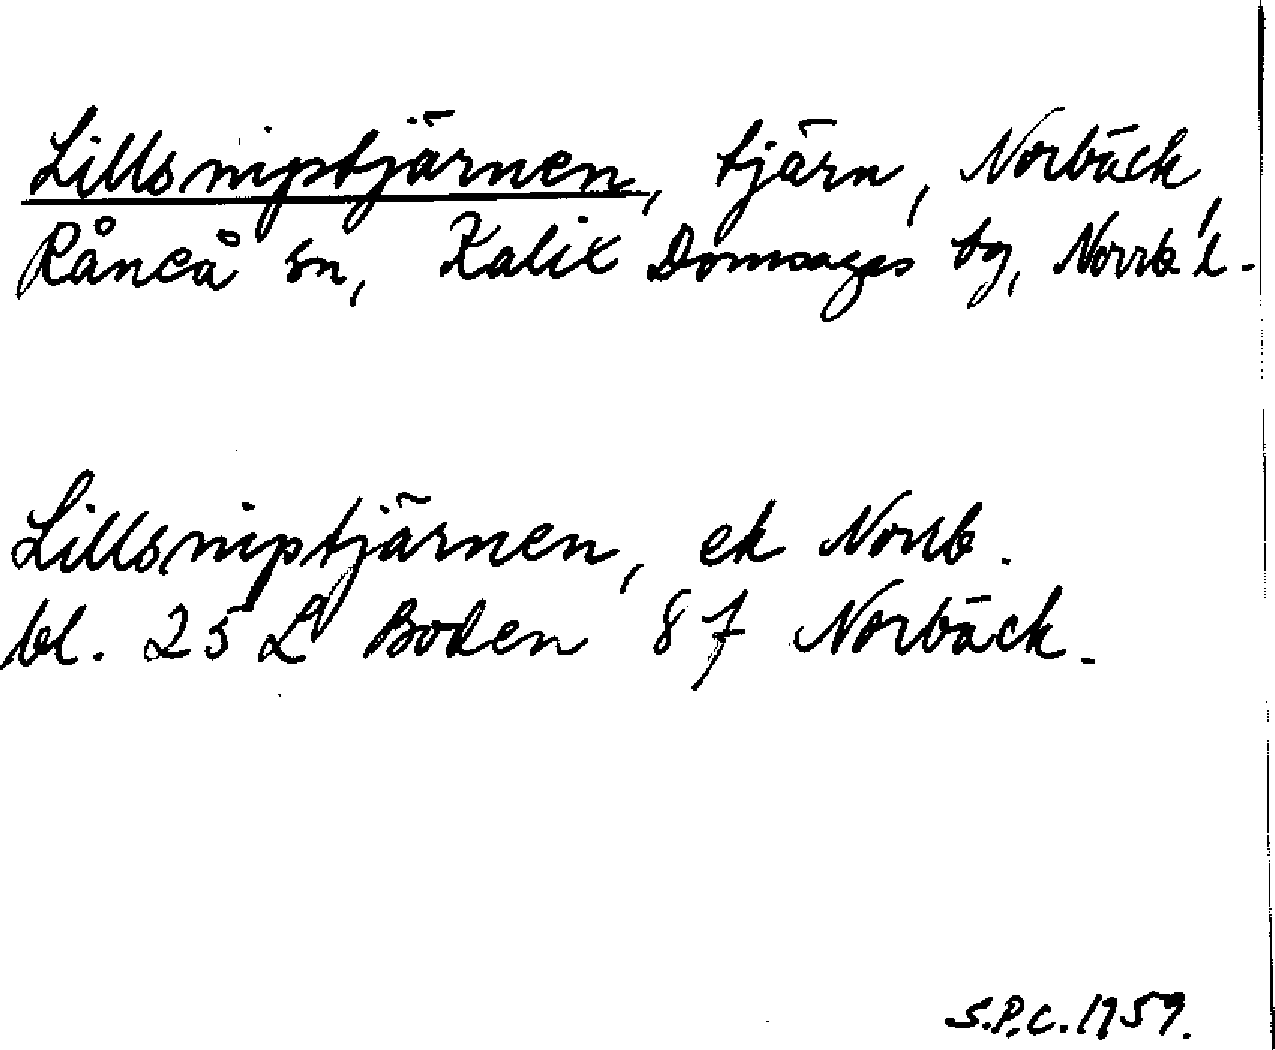 Lillsniptjärnen, tjärn, Norbäck,
Råneå sn, Kalix Domsagas tg, Norrb. l.
Lillsniptjärnen, ek Norrb.
bl. 25 L Boden 8 f Norbäck.
S.P.C. 1959.